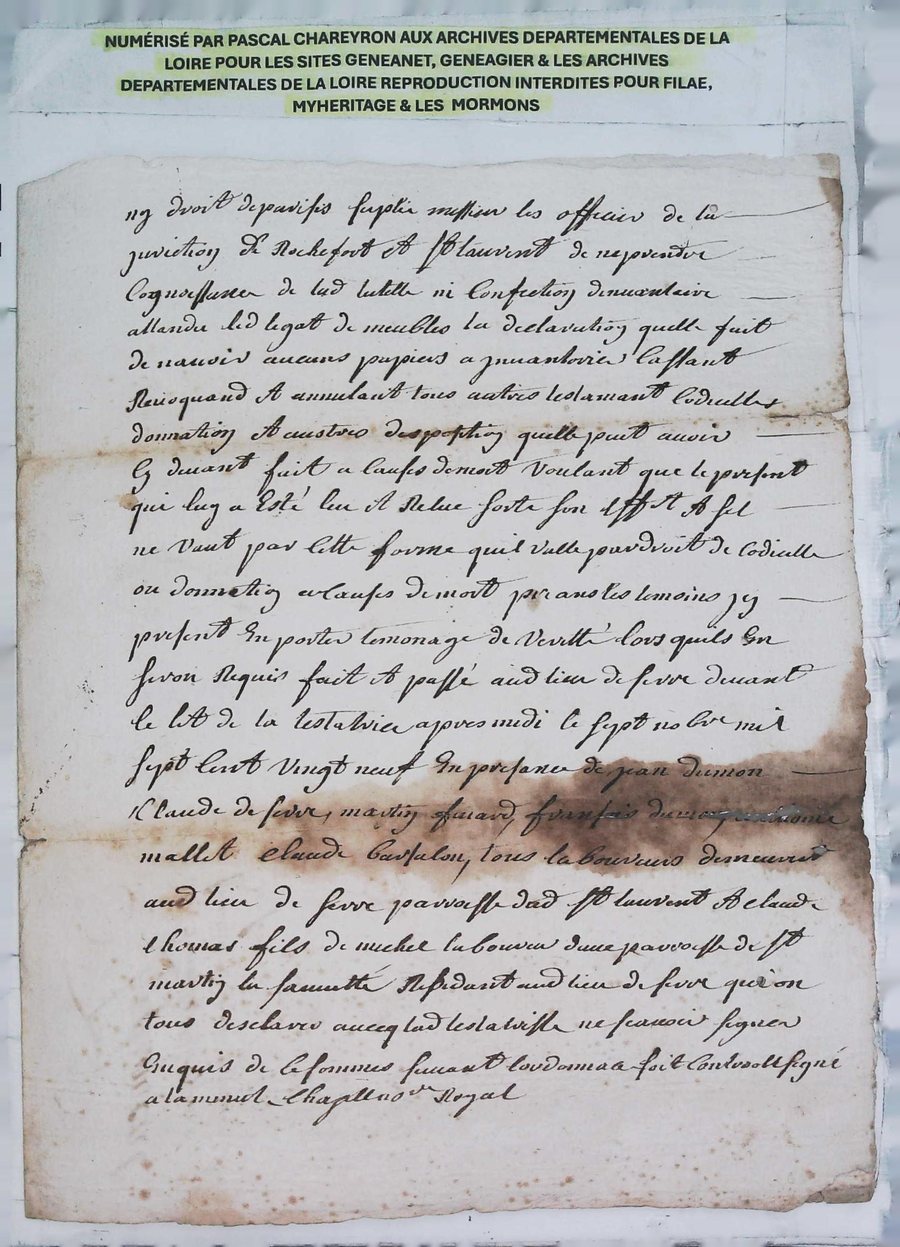 NUMÉRISÉ PAR PASCAL CHAREYRON AUX ARCHIVES DEPARTEMENTALES DE LA
LOIRE POUR LES SITES GENEANET, GENEAGIER & LES ARCHIVES
DEPARTEMENTALES DE LA LOIRE REPRODUCTION INTERDITES POUR FILAE,
MYHERITAGE & LES MORMONS
ny droit de parisis suplie messieur les officier de la
juriction de Rochefort et St laurent de ne prendre
Cognoessance de lad tutelle ni Confection dinvantaire
attandu led legat de meubles la declaration quelle fait
de navoir aucuns papiers a jnvantorier Cassant
Revoquand et annulant tous autres testamant Codicilles
donnation et austres disposition quelle peut avoir
Cy devant fait a Causes de mort Voulant que le present
qui luy a Esté leu et Relue sorte son effet et sil
ne Vaut par Cette forme quil Valle par droit de Codicille
ou donnation a Causes de mort priant les temoins jcy
present En porter temonage de Veritté lors quils En
seron Requis fait et passé aud lieu de serre devant
le lit de la testatrice apres midi le sept nobre mil
sept Cent Vingt neuf En presance de jean dumon
Claude de serre, martin girard, françois dumon
mallet Claude barsalon, tous laboureurs demeurant
aud lieu de serre parroesse dud St laurent et claude
thomas fils de michel laboureur dune parroesse de St
martin la sauvetté Residant aud lieu de serre qui on
tous desclarer avecq lad testatrisse ne scavoir signer
Enquis de Ce sommes suivant lordonnance soit Controllé signé
a la minut Chapelle nore Royal